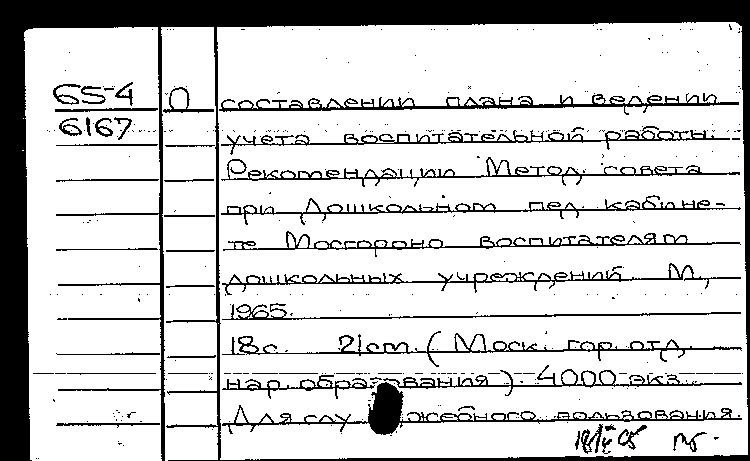 65-4 О составлении плана и ведении
6167 учета воспитательной работы.
Рекомендации Метод. совета
при Дошкольном пед. кабине-
те Мосгороно воспитателям
дошкольных учреждений. М.,
1965.
18 с. 21 cm. (Моск. гор. отд.
нар. образования). 4000 экз.
Для служебного пользования.